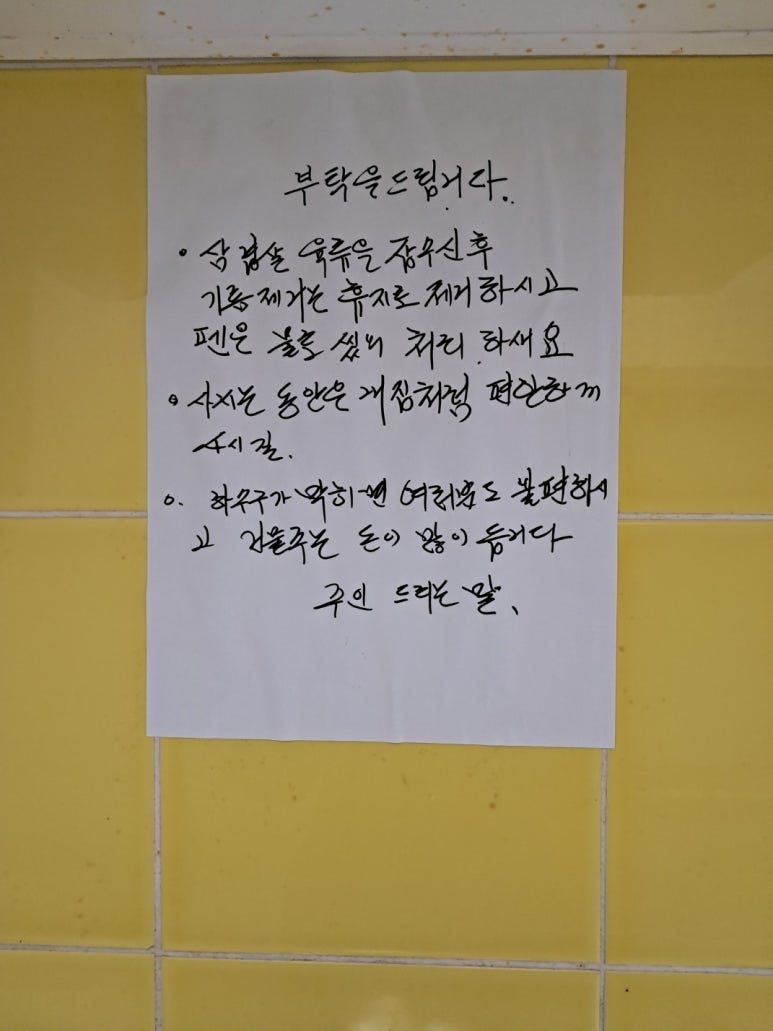 부탁을드립니다.
• 삼겹살 육류을 잡수신후
기름제거는 휴지로 제거하시고
펜은 물로 씻어 처리 하세요
• 사시는 동안은 내집처럼 편안하게
사시길.
o. 하수구가 막히면 여러분도 불편하시
고 건물주는 돈이 많이 듭니다
주인 드리는 말.